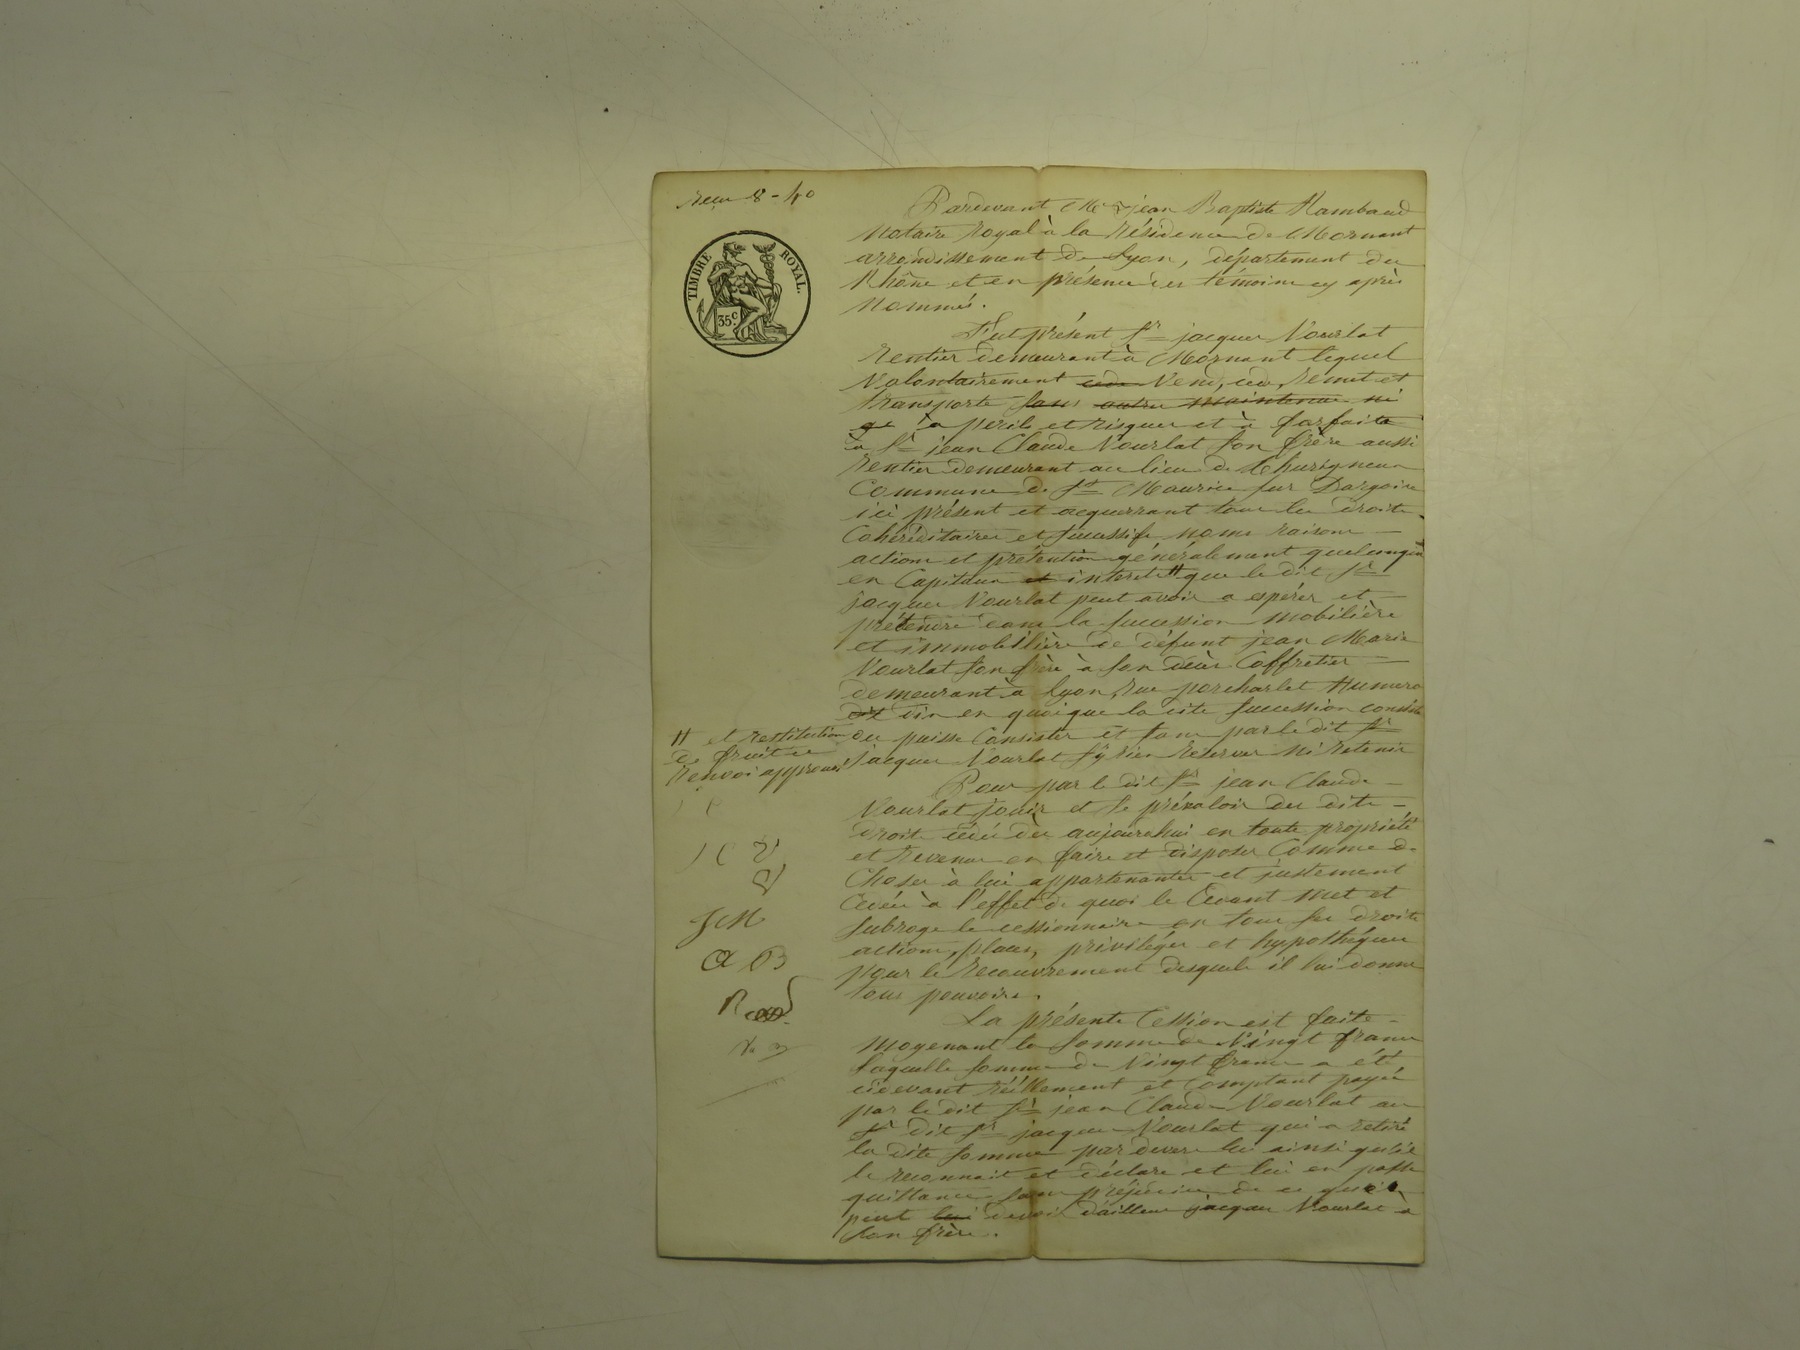 Reçu 8-40
TIMBRE ROYAL.
35c.
Pardevant Me jean Baptiste Rambaud
Notaire Royal à la Résidence de Mornant
arrondissement de Lyon, département du
Rhône et en présence des témoins cy après
Nommés.
Fut présent Sr jacques Vourlat
Rentier demeurant à Mornant lequel
Volontairement cede Vend, cede, Remet et
transporte sans autre maintenue ni
à périls et risques et à forfaite
à Sr jean Claude Vourlat son frère aussi
Rentier demeurant au lieu de
Commune de St Maurice sur Dargoire
ici présent et acquerrant tous les droits
Cohéréditaires et successifs noms raisons
actions et prétentions généralement quelconques
en Capitaux et interets # que le dit Sr
jacques Vourlat peut avoir a espérer et
prétendre dans la succession mobilière
et immobilière de défunt jean Marie
Vourlat son frère à son décès Coffretier
demeurant à Lyon, Rue porcharlet Numero
dix en quoique la dite succession consiste
# et restitution
de fruits
Renvoi approuvé
ou puisse Consister et sans par le dit Sr
jacques Vourlat s'y rien Reserver ni Retenir
Pour par le dit Sr jean Claude
Vourlat jouir et se prévaloir des dits
droits cédés dès aujourdhui en toute propriété
et Revenus en faire et disposer Comme de
Choses à lui appartenantes et justement
Cédées à l'effet de quoi le Cédant met et
subroge le cessionnaire en tous ses droits
actions, places, privilèges et hypothéques
pour le Recouvrement desquels il lui donne
tous pouvoirs.
J C V
JCM
La présente Cession est faite
Moyenant la somme de Vingt francs
laquelle somme de Vingt francs a été
cidevant Réellement et Comptant payée
par le dit Sr jean Claude Vourlat au
Sr dit Sr jacques Vourlat qui a retiré
la dite somme par devers lui ainsi qu'il
le reconnait et déclare et lui en passe
quittance sans préjudice de ce qu'il
peut lui devoir d'ailleurs jacques Vourlat a
son frère.